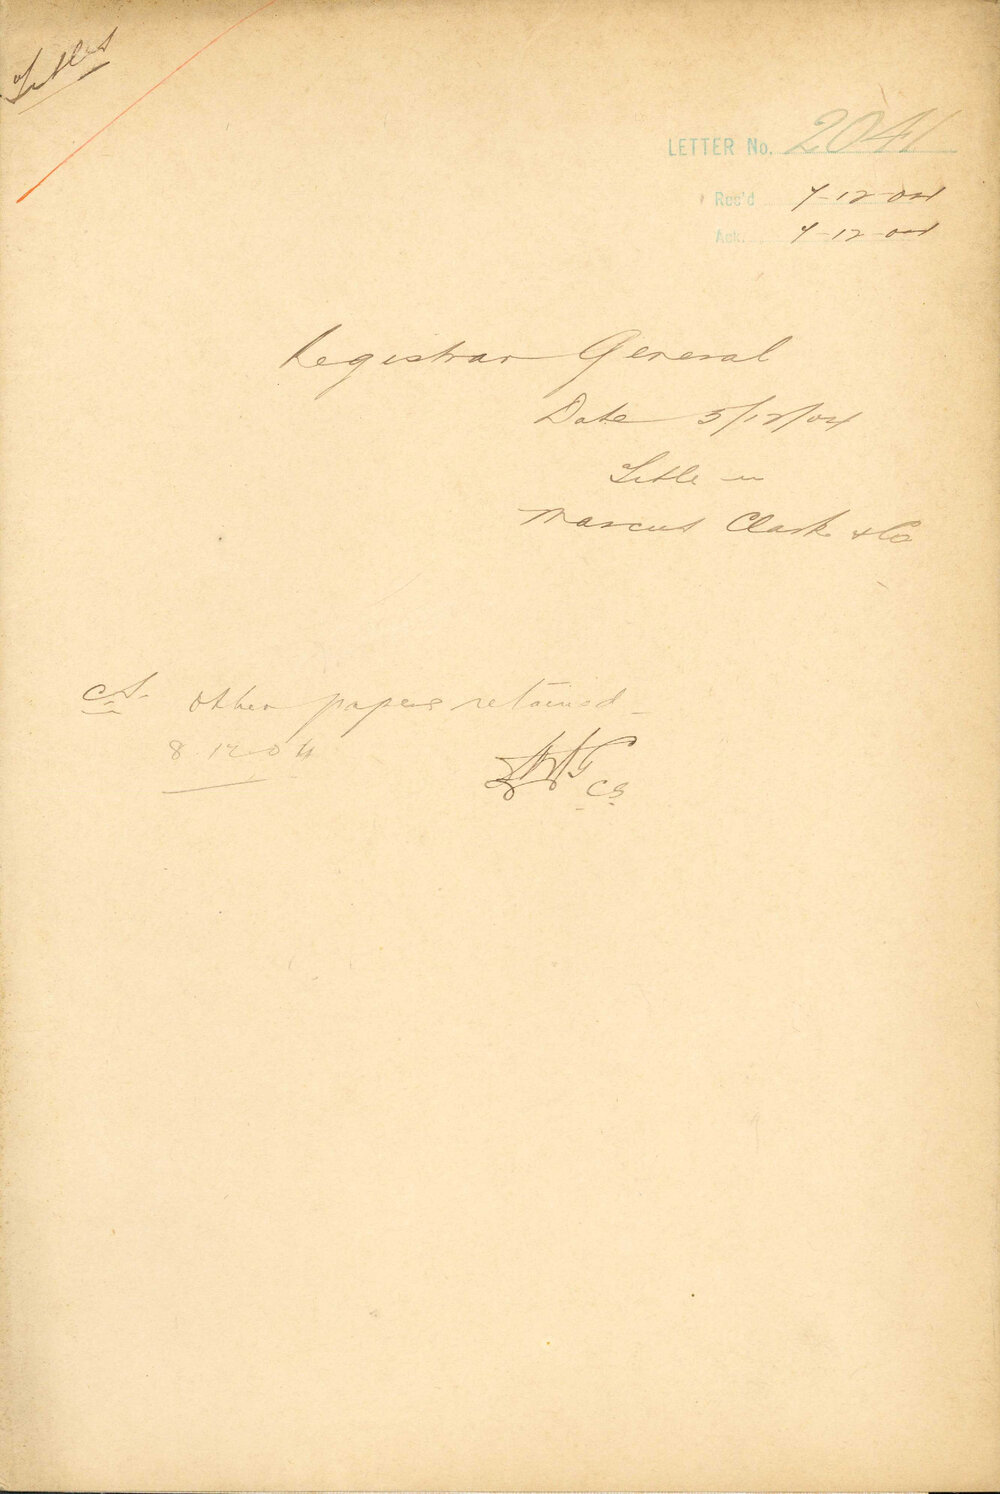 Titles
LETTER No. 2041
Rec'd 7-12-04
Ack. 7-12-04
Registrar General
Date 5/12/04
Title in
Marcus Clark & Co
Other papers retained
8.12.04
CS